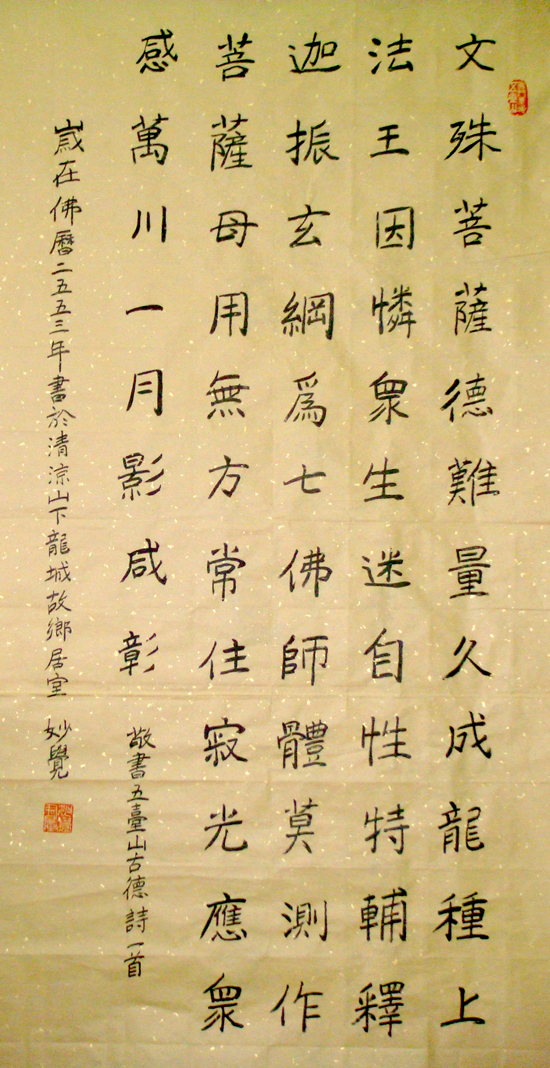 文殊菩薩德難量久成龍種上
法王因憐衆生迷自性特輔釋
迦振玄綱爲七佛師體莫測作
菩薩母用無方常住寂光應衆
感萬川一月影咸彰
敬書五臺山古德詩一首
歲在佛曆二五五三年書於清涼山下龍城故鄉居室 妙覺